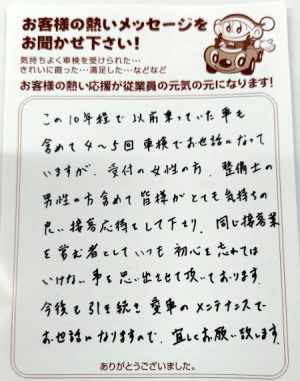 お客様の熱いメッセージを
お聞かせ下さい！
気持ちよく車検を受けられた…
きれいに直った…満足した…などなど
お客様の熱い応援が従業員の元気の元になります！
この10年程で以前乗っていた車も
含めて4〜5回車検でお世話になって
いますが、受付の女性の方、整備士の
男性の方含めて皆様がとても気持ちの
良い接客応待をして下さり、同じ接客業
を営む者としていつも初心を忘れては
いけない事を思い出させて頂いております。
今後も引き続き愛車のメンテナンスで
お世話になりますので、宜しくお願い致します。
ありがとうございました。